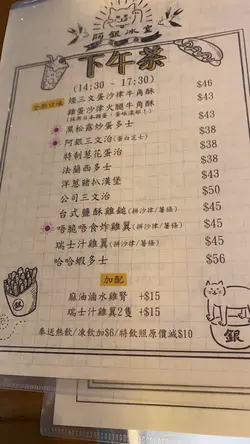 阿銀冰室
下午茶
(14:30 - 17:30)
全新口味
煙三文蛋沙律牛角酥 $46
雞蛋沙律火腿牛角酥 $43
$43
黑松露炒蛋多士 $38
阿銀三文治(蛋白芝士) $38
特制葱花蛋治 $38
法蘭西多士 $38
洋葱豬扒漢堡 $43
公司三文治 $50
台式鹽酥雞鎚(拼沙律/薯條) $45
唔脆唔食炸雞翼(拼沙律/薯條) $45
瑞士汁雞翼(拼沙律/薯條) $45
哈哈蝦多士 $56
加配
麻油滷水雞腎 +$15
瑞士汁雞翼2隻 +$15
奉送熱飲/凍飲加$6/特飲照原價減$10
銀
銀